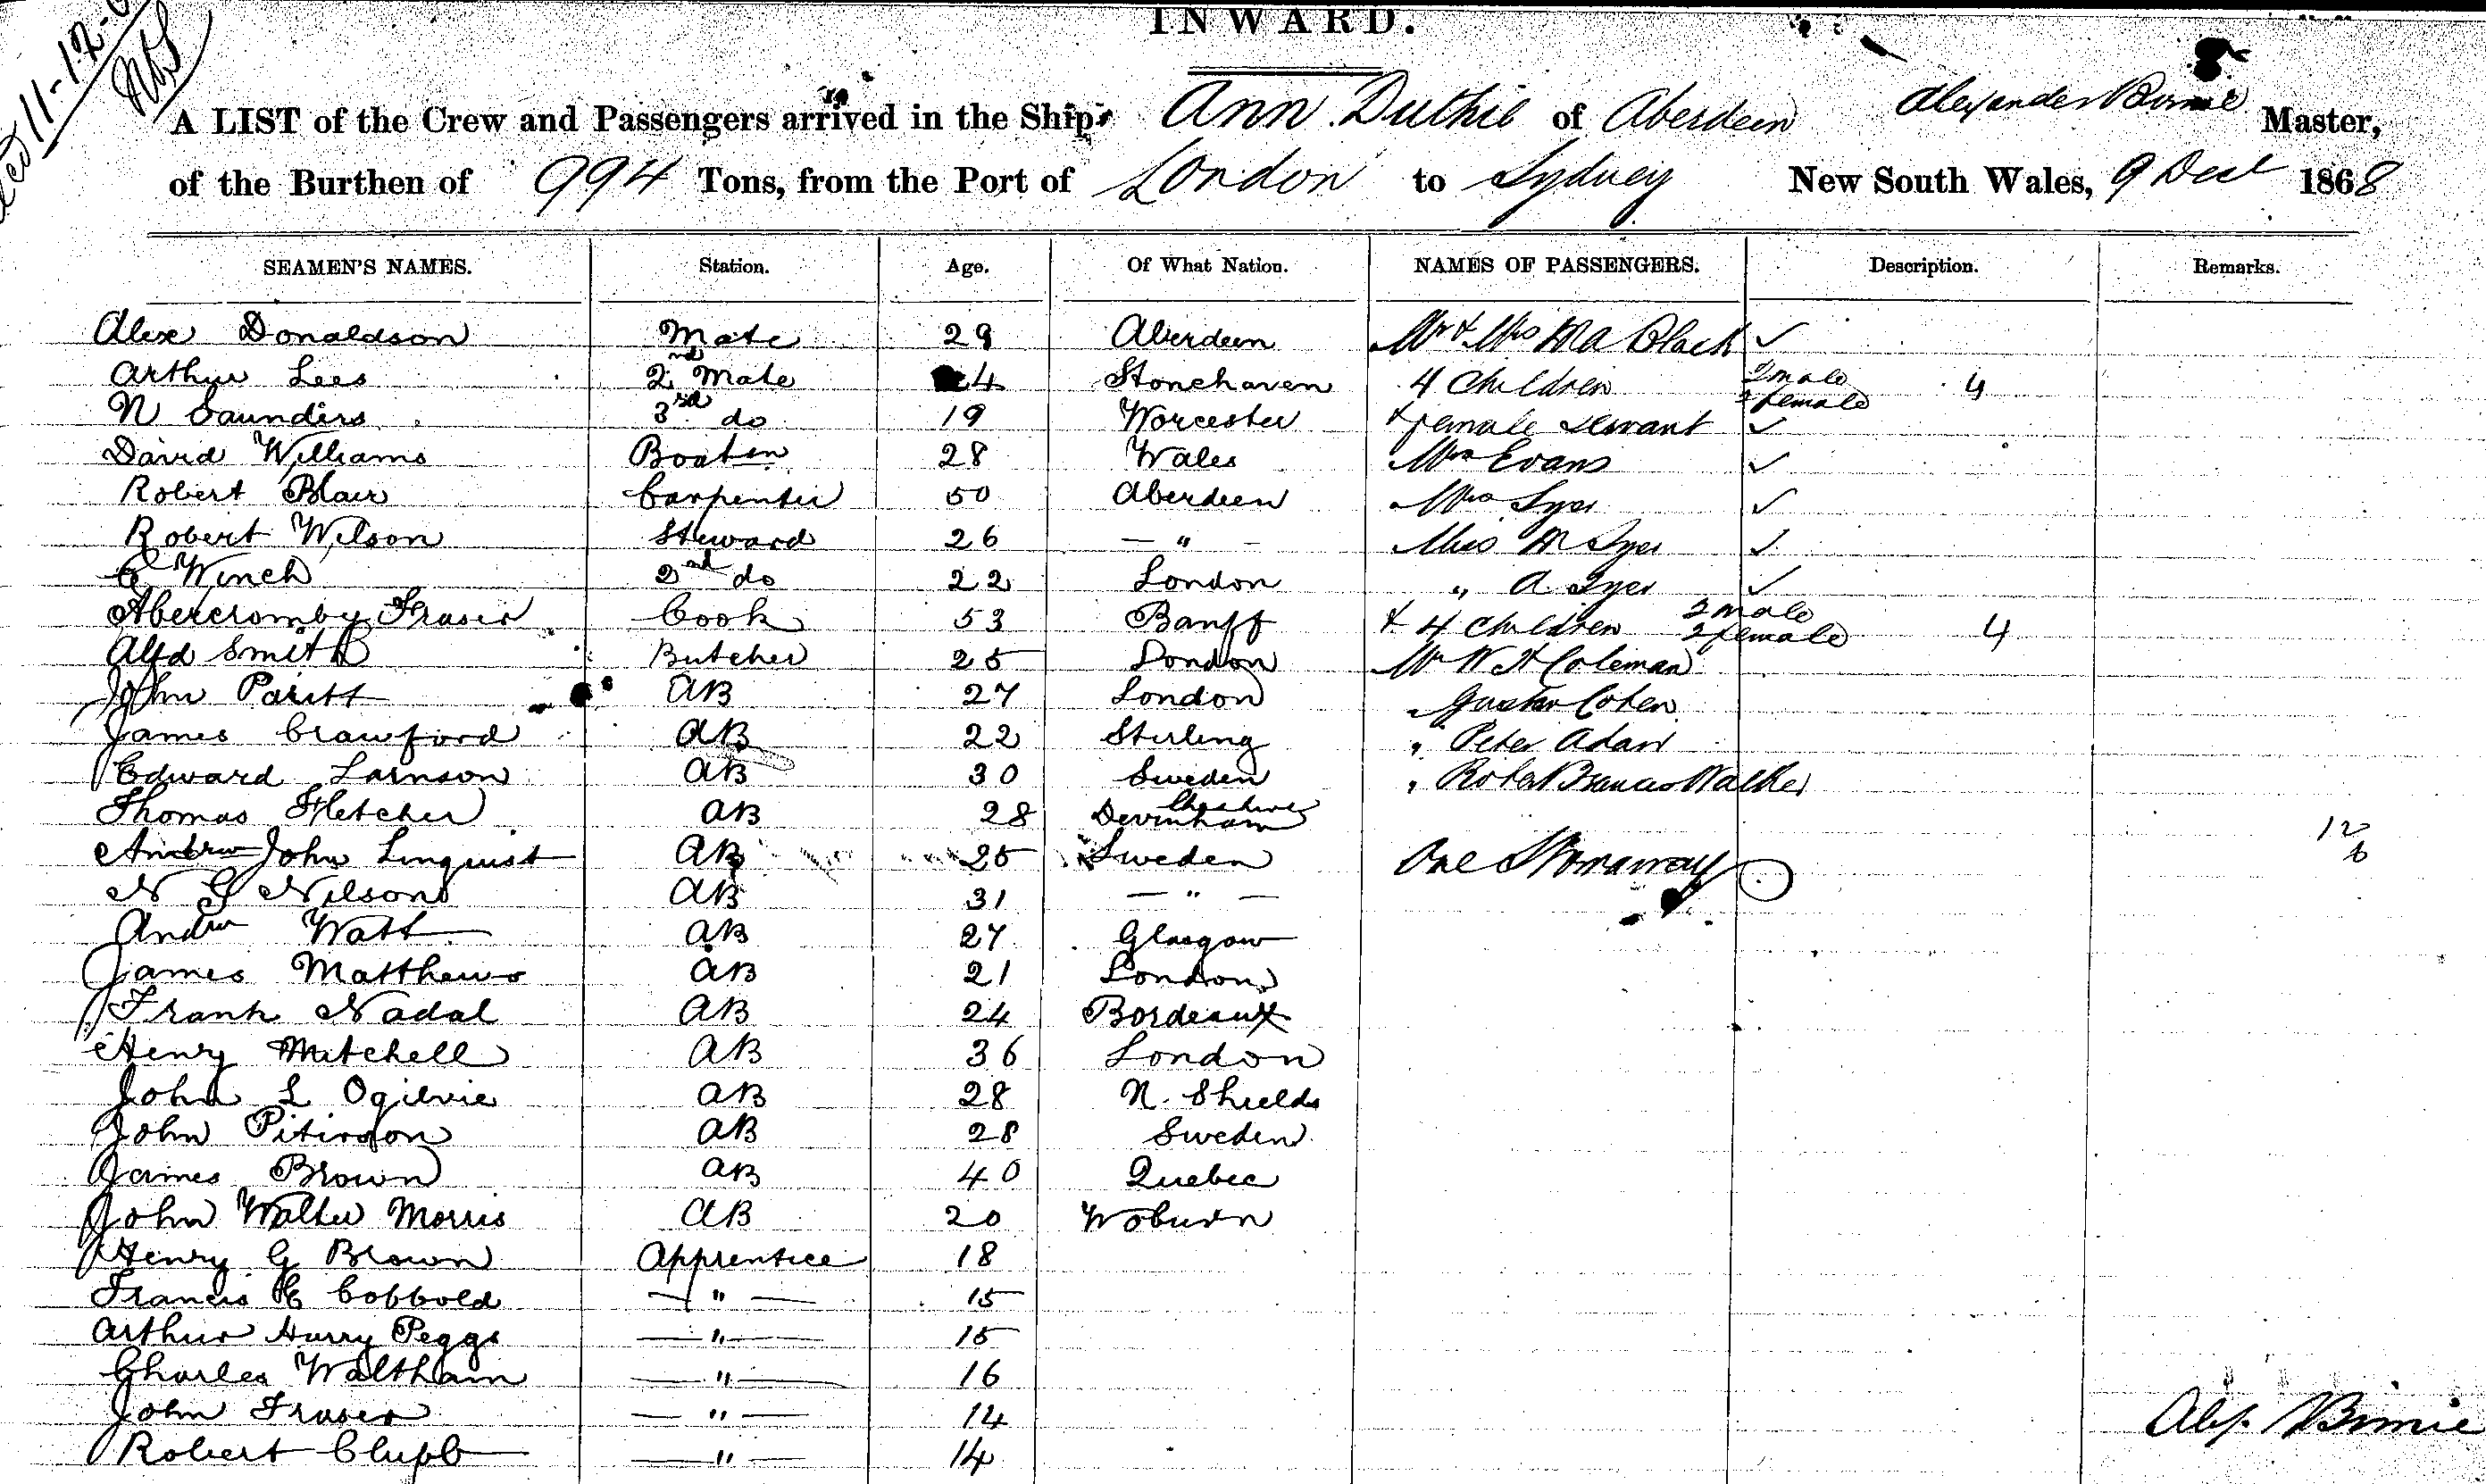 INWARD.
11-12-
A LIST of the Crew and Passengers arrived in the Ship Ann Duthie of Aberdeen Alexander Birnie Master,
of the Burthen of 994 Tons, from the Port of London to Sydney New South Wales, 9 Decr 1868
SEAMEN'S NAMES. Station. Age. Of What Nation. NAMES OF PASSENGERS. Description. Remarks.
Alex Donaldson Mate 29 Aberdeen Mr & Mrs Black ✓
Arthur Lees 2nd Mate 4 Stonehaven 4 Children 2 male 2 female 4
N Saunders 3rd do 19 Worcester & female Servant ✓
David Williams Boatsn 28 Wales Mrs Evans ✓
Robert Blair Carpenter 50 Aberdeen Mrs Syer ✓
Robert Wilson Steward 26 — " — Miss M Syer ✓
C Winch 2nd do 22 London " A Syer ✓
Abercromby Fraser Cook 53 Banff & 4 Children 2 male 2 female 4
Alfd Smith Butcher 25 London Mr W H Coleman
John Paritt AB 27 London " Gustav Cohen
James Crawford AB 22 Stirling " Peter Adam
Edward Larnson AB 30 Sweden " Robert Frances Walker
Thomas Fletcher AB 28 Cheshire 12
Andrew John Linquist AB 25 Sweden One Stowaway 6
N G Nilson AB 31 — " —
Andw Watt AB 27 Glasgow
James Matthews AB 21 London
Frank Nadal AB 24 Bordeaux
Henry Mitchell AB 36 London
John L Ogilvie AB 28 N. Shields
John Piterson AB 28 Sweden
James Brown AB 40 Quebec
John Walter Morris AB 20 Woburn
Henry G Brown Apprentice 18
Francis E Cobbold — " — 15
Arthur Harry Peggs — " — 15
Charles Waltham — " — 16
John Fraser — " — 14
Alex. Birnie
Robert Clubb — " — 14